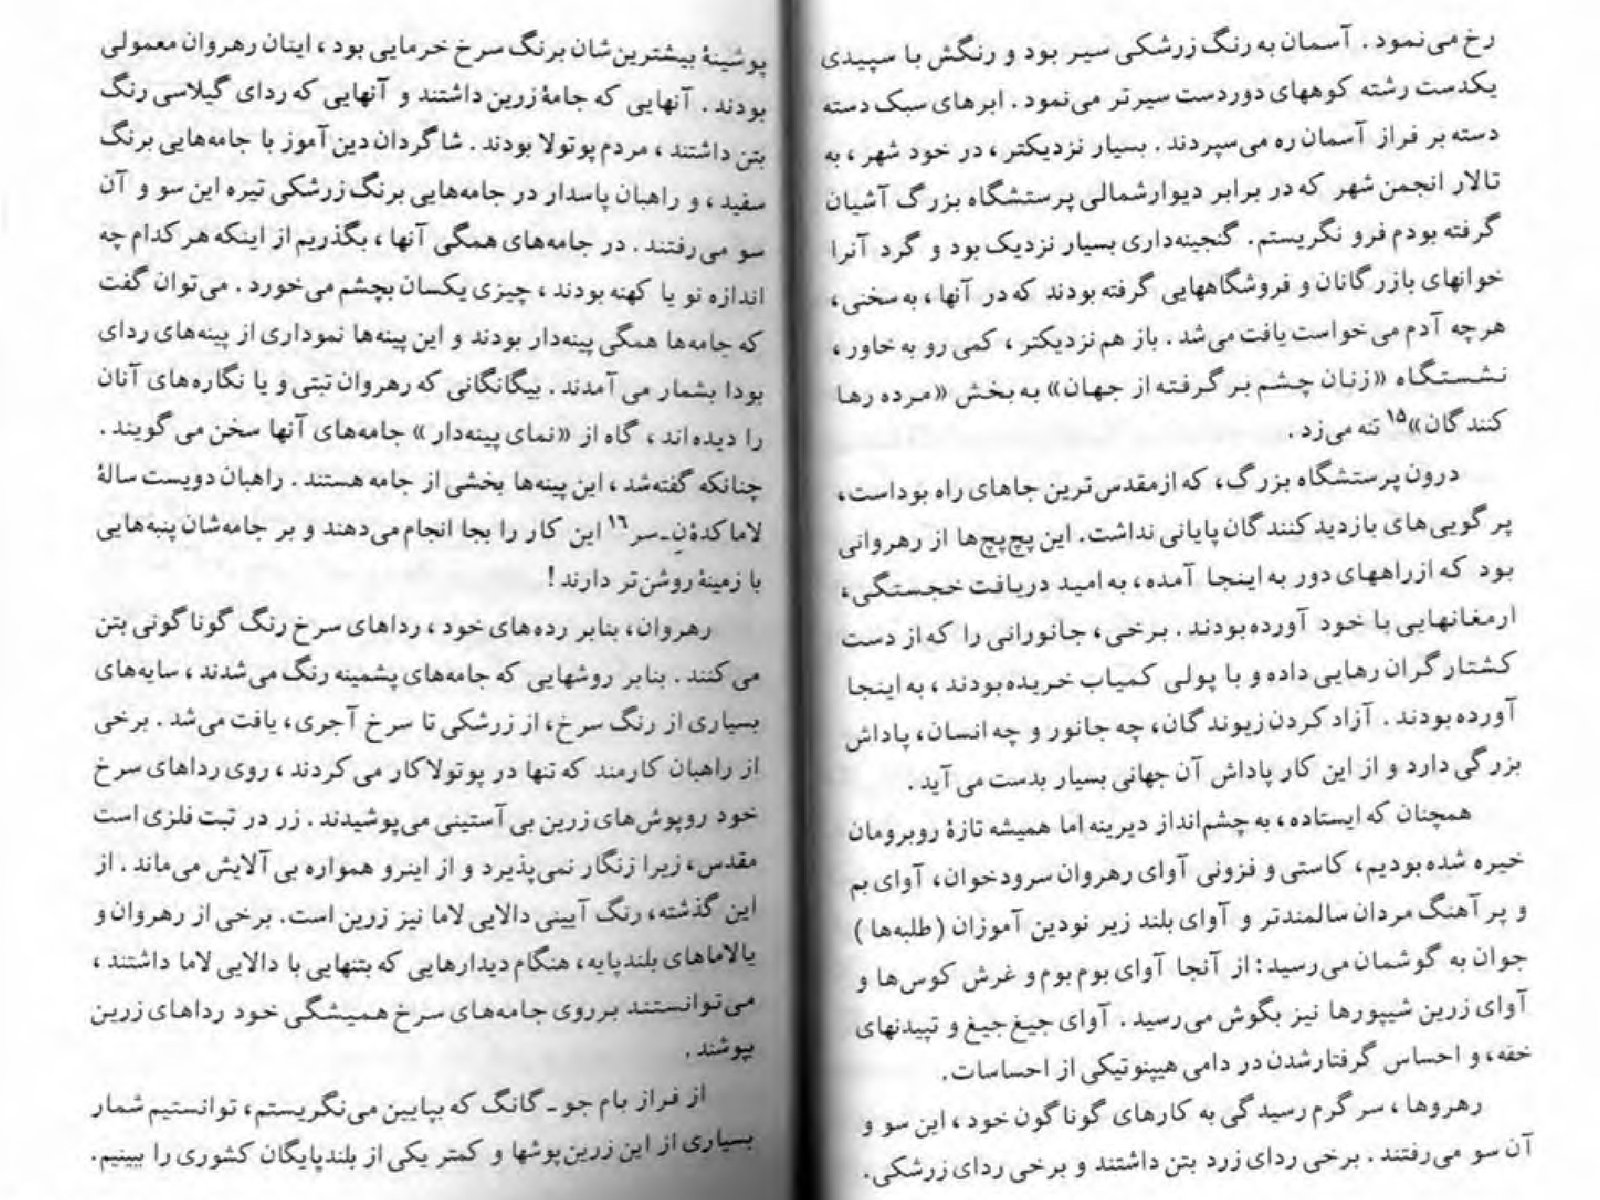 رخ می‌نمود. آسمان به رنگ زرشکی سیر بود و رنگش با سپیدی
یکدست رشته کوههای دوردست سیرتر می‌نمود. ابرهای سبک دسته
دسته بر فراز آسمان ره می‌سپردند. بسیار نزدیکتر، در خود شهر، به
تالار انجمن شهر که در برابر دیوارشمالی پرستشگاه بزرگ آشیان
گرفته بودم فرو نگریستم. گنجینه‌داری بسیار نزدیک بود و گرد آنرا
خوانهای بازرگانان و فروشگاههایی گرفته بودند که در آنها، به سخنی،
هرچه آدم می‌خواست یافت می‌شد. باز هم نزدیکتر، کمی رو به خاور،
نشستگاه «زنان چشم برگرفته از جهان» به بخش «مرده رها
کنندگان»۱۵ تنه می‌زد.
درون پرستشگاه بزرگ، که از مقدس‌ترین جاهای راه بوداست،
پرگویی‌های بازدید کنندگان پایانی نداشت. این پچ‌پچ‌ها از رهروانی
بود که از راههای دور به اینجا آمده، به امید دریافت خجستگی،
ارمغانهایی با خود آورده بودند. برخی، جانورانی را که از دست
کشتارگران رهایی داده و با پولی کمیاب خریده بودند، به اینجا
آورده بودند. آزاد کردن زیوندگان، چه جانور و چه انسان، پاداش
بزرگی دارد و از این کار پاداش آن جهانی بسیار بدست می‌آید.
همچنان که ایستاده، به چشم‌انداز دیرینه اما همیشه تازهٔ روبرومان
خیره شده بودیم، کاستی و فزونی آوای رهروان سرودخوان، آوای بم
و پر آهنگ مردان سالمندتر و آوای بلند زیر نودین آموزان (طلبه‌ها)
جوان به گوشمان می‌رسید: از آنجا آوای بوم بوم و غرش کوس‌ها و
آوای زرین شیپورها نیز بگوش می‌رسید. آوای جیغ جیغ و تپیدنهای
خفه، و احساس گرفتار شدن در دامی هیپنوتیکی از احساسات.
رهروها، سرگرم رسیدگی به کارهای گوناگون خود، این سو و
آن سو می‌رفتند. برخی ردای زرد بتن داشتند و برخی ردای زرشکی.
پوشینهٔ بیشترین‌شان برنگ سرخ خرمایی بود، اینان رهروان معمولی
بودند. آنهایی که جامهٔ زرین داشتند و آنهایی که ردای گیلاسی رنگ
بتن داشتند، مردم پوتولا بودند. شاگردان دین آموز با جامه‌هایی برنگ
سفید، و راهبان پاسدار در جامه‌هایی برنگ زرشکی تیره این سو و آن
سو می‌رفتند. در جامه‌های همگی آنها، بگذریم از اینکه هر کدام چه
اندازه نو یا کهنه بودند، چیزی یکسان بچشم می‌خورد. می‌توان گفت
که جامه‌ها همگی پینه‌دار بودند و این پینه‌ها نموداری از پینه‌های ردای
بودا بشمار می‌آمدند. بیگانگانی که رهروان تبتی و یا نگاره‌های آنان
را دیده‌اند، گاه از «نمای پینه‌دار» جامه‌های آنها سخن می‌گویند.
چنانکه گفته شد، این پینه‌ها بخشی از جامه هستند. راهبان دویست سالهٔ
لاماکدهٔ نِ-سر۱۶ این کار را بجا انجام می‌دهند و بر جامه‌شان پنبه‌هایی
با زمینهٔ روشن‌تر دارند!
رهروان، بنابر رده‌های خود، رداهای سرخ رنگ گوناگونی بتن
می‌کنند. بنابر روشهایی که جامه‌های پشمینه رنگ می‌شدند، سایه‌های
بسیاری از رنگ سرخ، از زرشکی تا سرخ آجری، یافت می‌شد. برخی
از راهبان کارمند که تنها در پوتولا کار می‌کردند، روی رداهای سرخ
خود روپوش‌های زرین بی آستینی می‌پوشیدند. زر در تبت فلزی است
مقدس، زیرا زنگار نمی‌پذیرد و از اینرو همواره بی آلایش می‌ماند. از
این گذشته، رنگ آیینی دالایی لاما نیز زرین است. برخی از رهروان و
یالاماهای بلندپایه، هنگام دیدارهایی که بتنهایی با دالایی لاما داشتند،
می‌توانستند برروی جامه‌های سرخ همیشگی خود رداهای زرین
بپوشند.
از فراز بام جو - گانگ که بپایین می‌نگریستم، توانستیم شمار
بسیاری از این زرین‌پوشها و کمتر یکی از بلندپایگان کشوری را ببینیم.